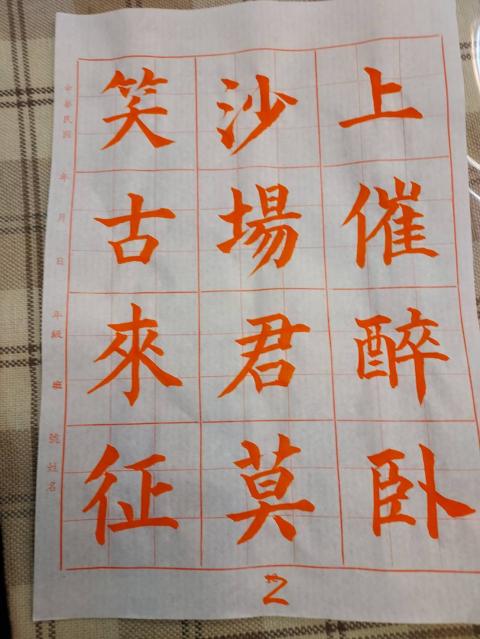 上催醉卧
沙場君莫
笑古來征
中華民國 年 月 日 年級 班 號 姓名
2